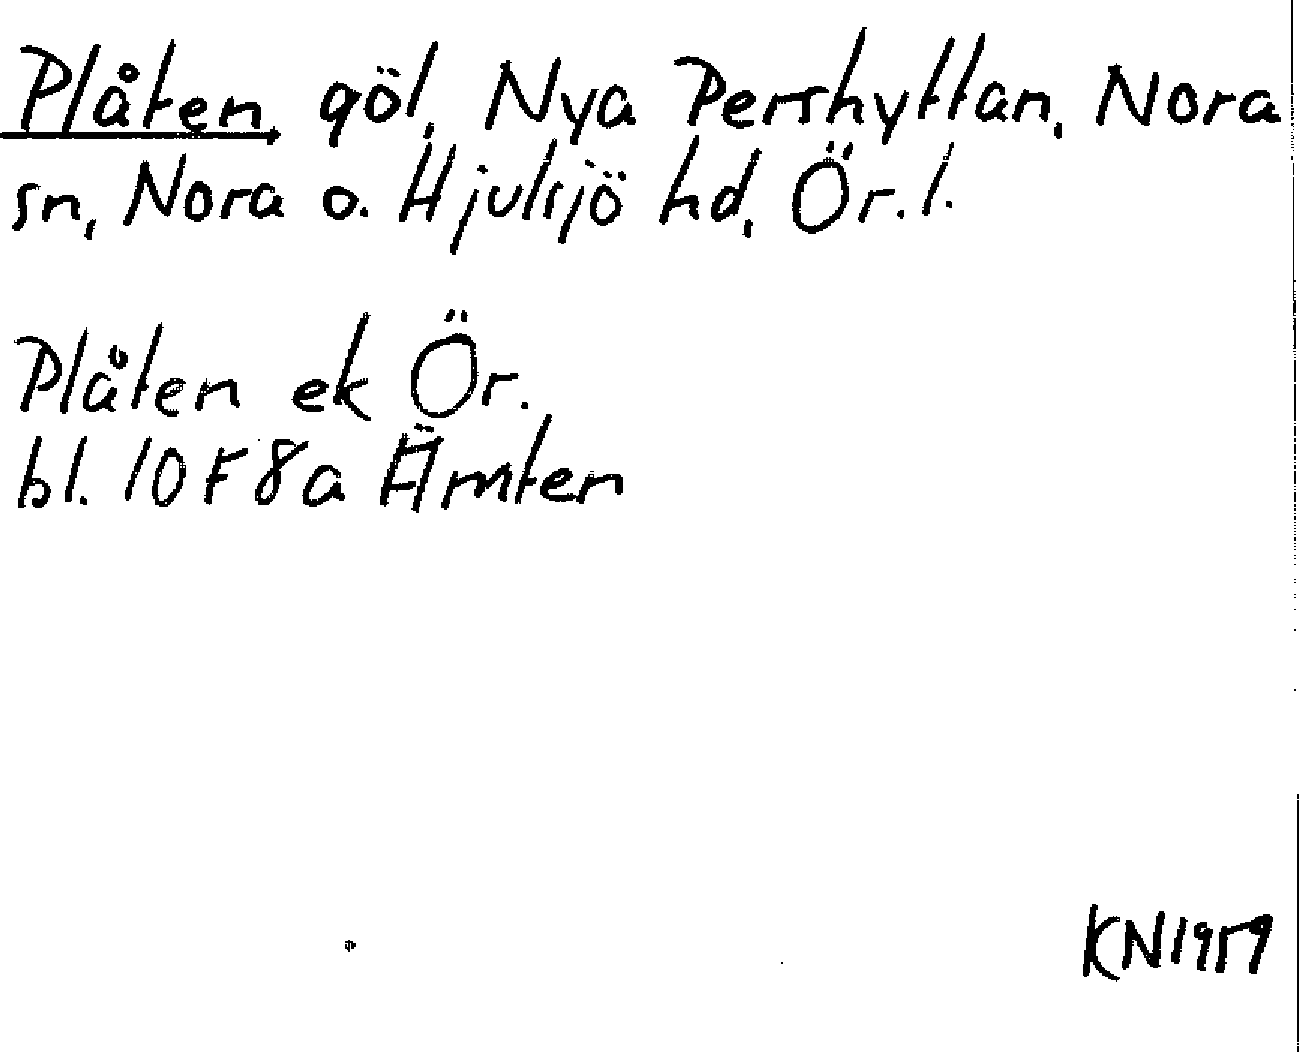 Plåten, göl, Nya Pershyttan, Nora
sn, Nora o. Hjulsjö hd, Ör. l.
Plåten ek Ör.
bl. 10F8a Ämten
KN1959